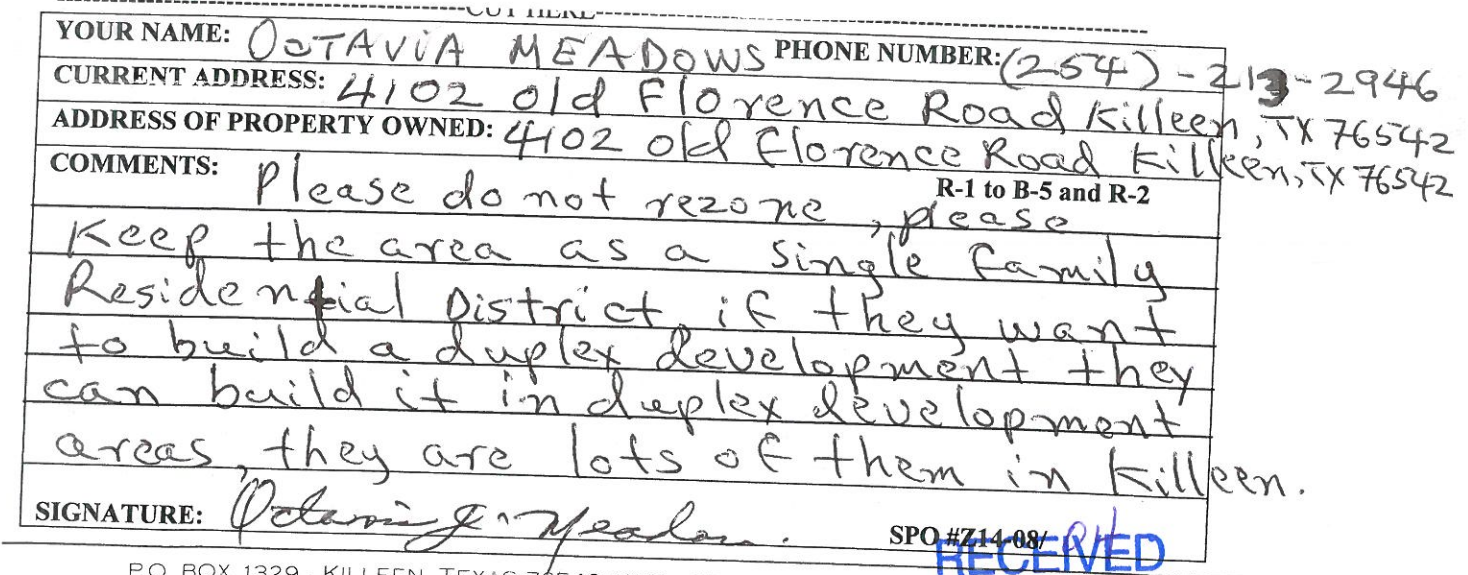 CUT HERE
YOUR NAME: OCTAVIA MEADOWS PHONE NUMBER: (254)-213-2946
CURRENT ADDRESS: 4102 old Florence Road Killeen, TX 76542
ADDRESS OF PROPERTY OWNED: 4102 old Florence Road Killeen, TX 76542
COMMENTS: Please do not rezone, please
R-1 to B-5 and R-2
Keep the area as a single family
Residential District if they want
to build a duplex development they
can build it in duplex development
areas, they are lots of them in Killeen.
SIGNATURE: Octavia J. Meadows
SPO #Z14-08/
RECEIVED
P.O. BOX 1329 KILLEEN, TEXAS